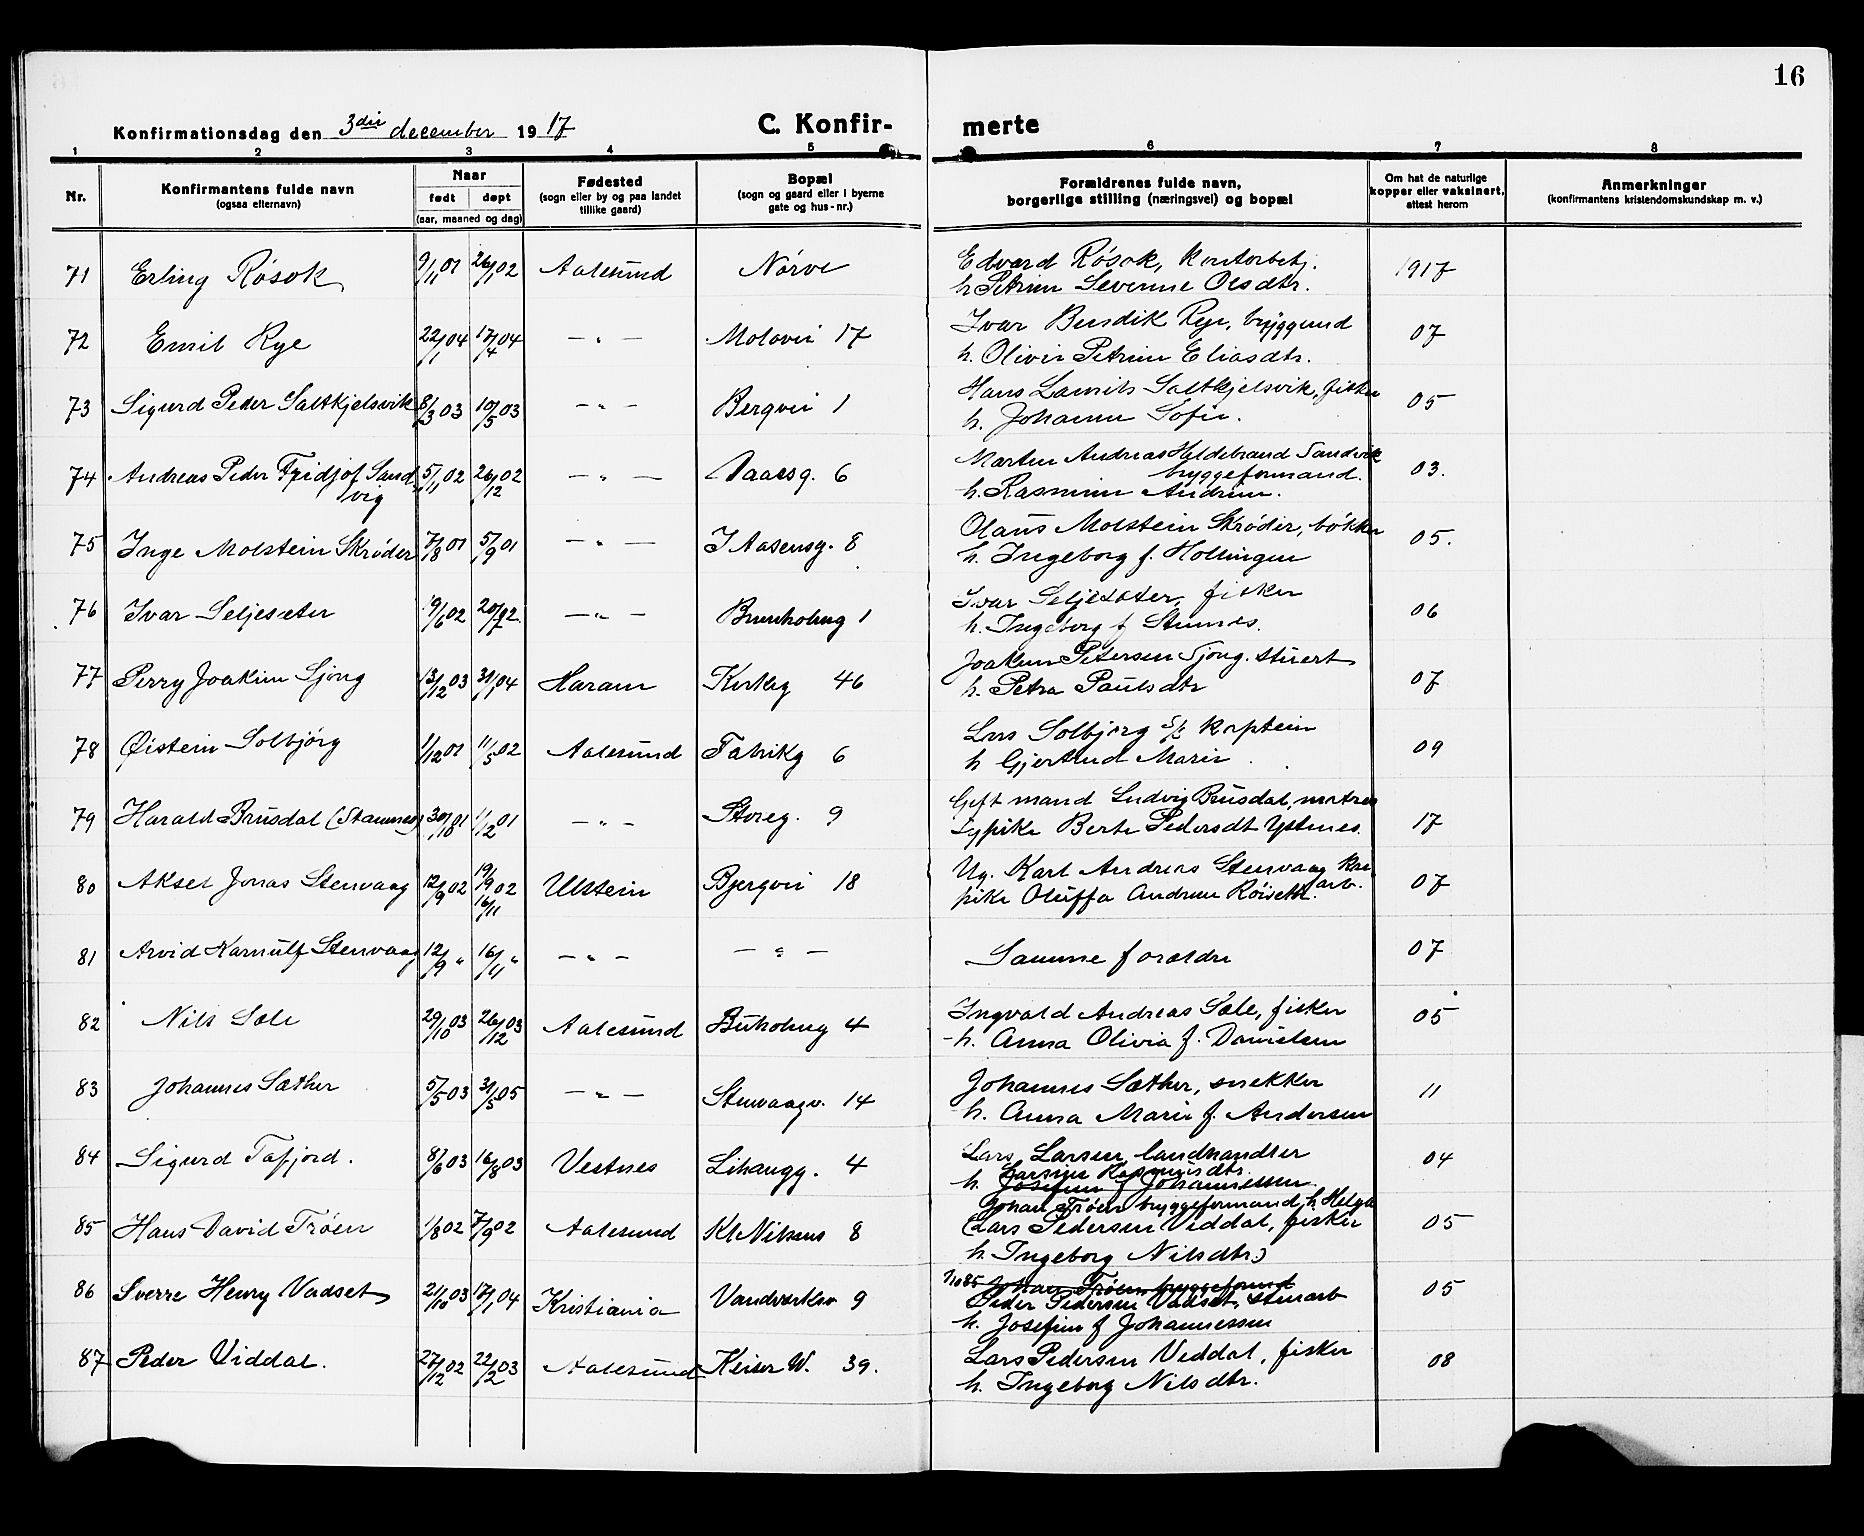 16
Konfirmationsdag den 3die december 1917
C. Konfir- merte
1 2 3 4 5 6 7 8
Nr.
Konfirmantens fulde navn
(ogsaa efternavn)
Naar
født døpt
(aar, maaned og dag)
Fødested
(sogn eller by og paa landet
tillike gaard)
Bopæl
(sogn og gaard eller i byerne
gate og hus-nr.)
Forældrenes fulde navn,
borgerlige stilling (næringsvei) og bopæl
Om hat de naturlige
kopper eller vaksinert,
attest herom
Anmerkninger
(konfirmantens kristendomskundskap m. v.)
71 Erling Røsok 9/11 01 26/1 02 Aalesund Nørve Edvard Røsok, kontorbetj. 1917
h. Petrine Severine Olsdtr.
72 Emil Rye 22/1 04 17/4 04 — " — Molovei 17 Ivar Bendik Rye, 07
h. Olivie Petrine Eliasdtr.
73 Sigurd Peder Saltkjelsvik 8/3 03 10/5 03 — " — Bergvei 1 Hans Laurits Saltkjelsvik, fisker 05
h. Johanne Sofie.
74 Andreas Peder Fridjof Sand 5/11 02 26/12 02 — " — Daaesg. 6 Martin Andreas Hildebrand Sandvik 03.
vig bryggeformand.
h. Rasmine Andrine.
75 Inge Molstein Skrøder 7/8 01 5/9 01 — " — I Aasensg. 8 Olaus Molstein Skrøder, bøkker 05.
h. Ingeborg f. Hollingen
76 Ivar Seljesæter 9/6 02 20/7 02 — " — Brunholmg 1 Ivar Seljesæter, fisker 06
h. Ingeborg f Stennes.
77 Perry Joakim Sjong 13/12 03 31/1 04 Haram Kirkeg 46 Joakim Petersen Sjong. stuert 07
h. Petra Paulsdtr
78 Øistein Solbjørg 1/12 01 11/5 02 Aalesund Fabrikg 6 Lars Solbjørg s/s kaptein 09
h Gjertrud Marie
79 Harald Brusdal (Stamnes) 30/10 01 1/12 01 — " — Storeg. 9 Gift mand Ludvig Brusdal, matros 17
og pike Berte Pedersdt Ystenes
80 Aksel Jonas Stenvaag 12/9 02 19/9 02 16/11 Ulstein Bjergvei 18 Ug. Karl Andreas Stenvaag 07
arb.
pike Oluffa Andrine Røiset
81 Arvid Karnulf Stenvaag 12/9 " 16/11 " — " — — " — Samme forældre 07
82 Nils Sæle 29/10 03 26/12 03 Aalesund Buholmg 4 Ingvald Andreas Sæle, fisker 05
h. Anna Olivia f. Danielsen
83 Johannes Sæther 5/5 03 31/5 05 — " — Stenvaagv. 14 Johannes Sæther, snekker 11
h. Anna Marie f. Andersen
84 Sigurd Tafjord. 8/6 03 16/8 03 Vestnes Lihaugg. 4 Lars Larsen landhandler 04
Larsine Rasmusdtr.
h. Josefine f Johannessen
85 Hans David Trøen 1/8 02 7/9 02 Aalesund Kl Nilsens 8 Johan Trøen bryggeformand, h Helga 05
(Lars Pedersen Viddal, fisker
h. Ingeborg Nilsdtr.)
86 Sverre Henry Vadset 21/10 03 17/1 04 Kristiania Vandværksv 9 no 85 Johan Trøen bryggeformd 05
Peder Pedersen Vadset, stenarb
h. Josefine f Johannessen
87 Peder Viddal. 27/12 02 22/2 03 Aalesund Keiser W. 39. Lars Pedersen Viddal, fisker 08
h. Ingeborg Nilsdtr.